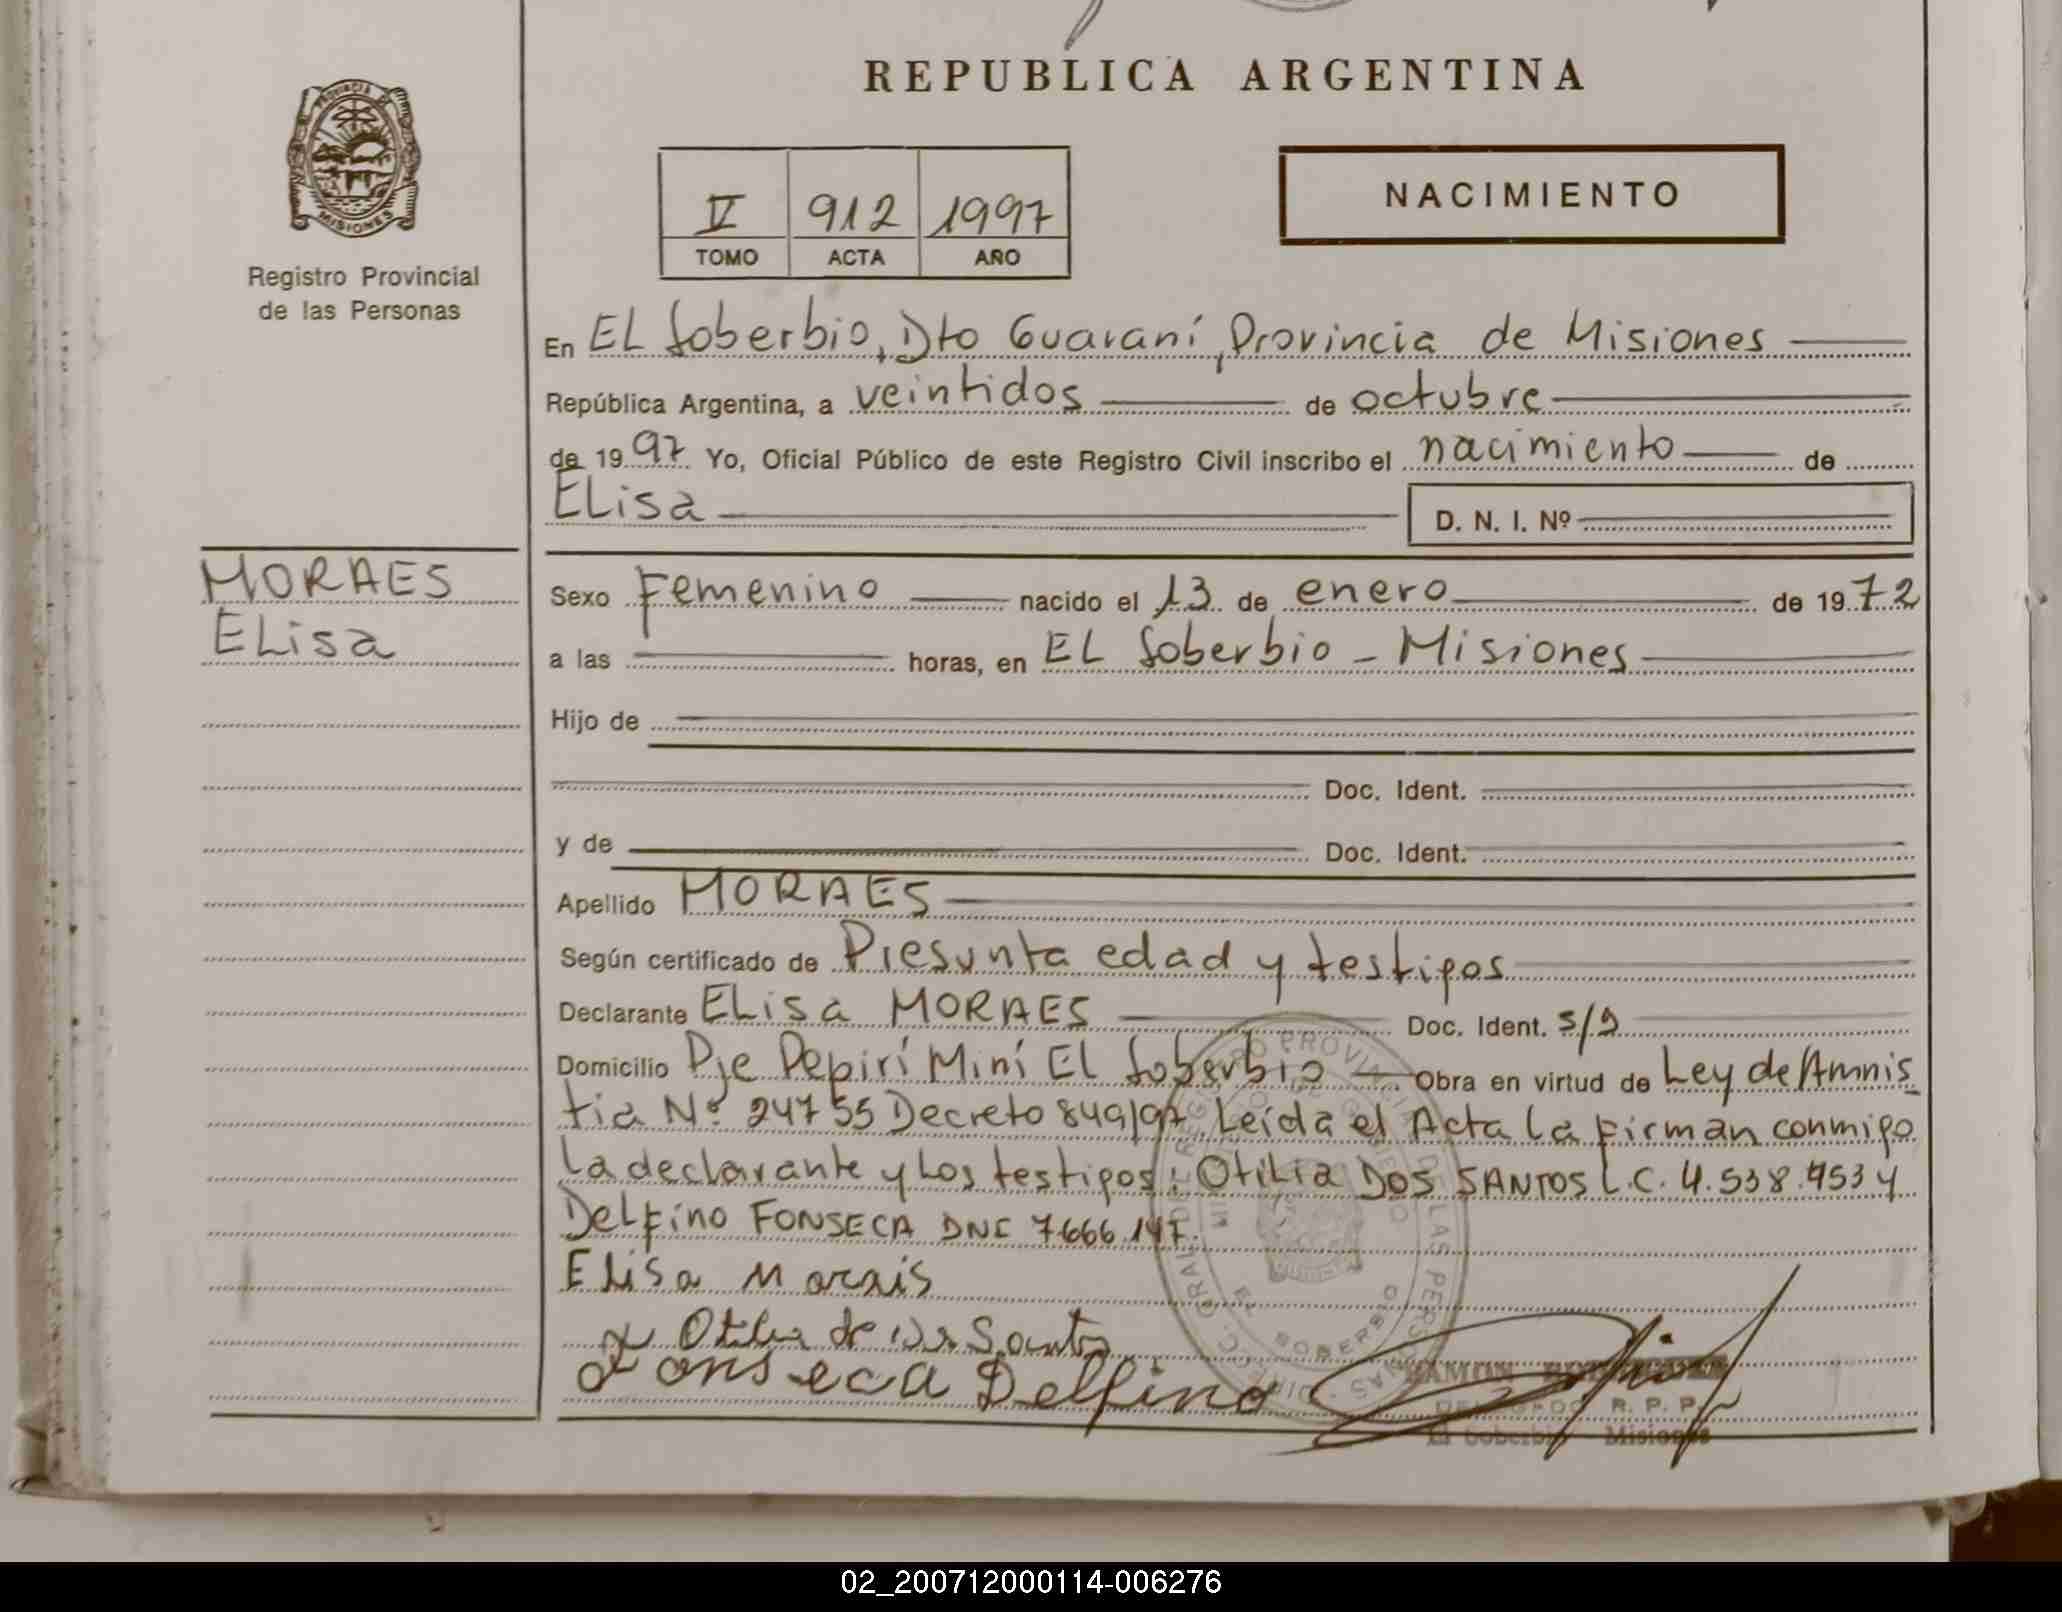 REPUBLICA ARGENTINA
PROVINCIA DE
MISIONES
Registro Provincial
de las Personas
IV 912 1997
TOMO ACTA AÑO
NACIMIENTO
En EL Soberbio, Dto Guaraní, Provincia de Misiones
República Argentina, a veintidos de octubre
de 1997 Yo, Oficial Público de este Registro Civil inscribo el nacimiento de
ELisa D. N. I. Nº
MORAES
ELisa
Sexo Femenino nacido el 13 de enero de 1972
a las horas, en EL Soberbio - Misiones
Hijo de
Doc. Ident.
y de Doc. Ident.
Apellido MORAES
Según certificado de Presunta edad y testigos
Declarante ELisa MORAES Doc. Ident. s/d
Domicilio Pje Pepirí Miní El Soberbio Obra en virtud de Ley de Amnis
tia Nº 24755 Decreto 849/97. Leída el Acta la firman conmigo
la declarante y los testigos: Otilia DOS SANTOS L.C. 4.538.953 y
Delfino FONSECA DNI 7666.147.
Elisa Morais
Otilia de Dos Santos
Fonseca Delfino
RAMON
DELEGADO R. P. P.
El Soberbio Misiones
EL SOBERBIO
02_200712000114-006276